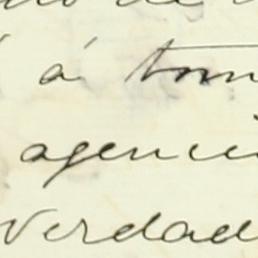 de
á tom
agenci
verdad